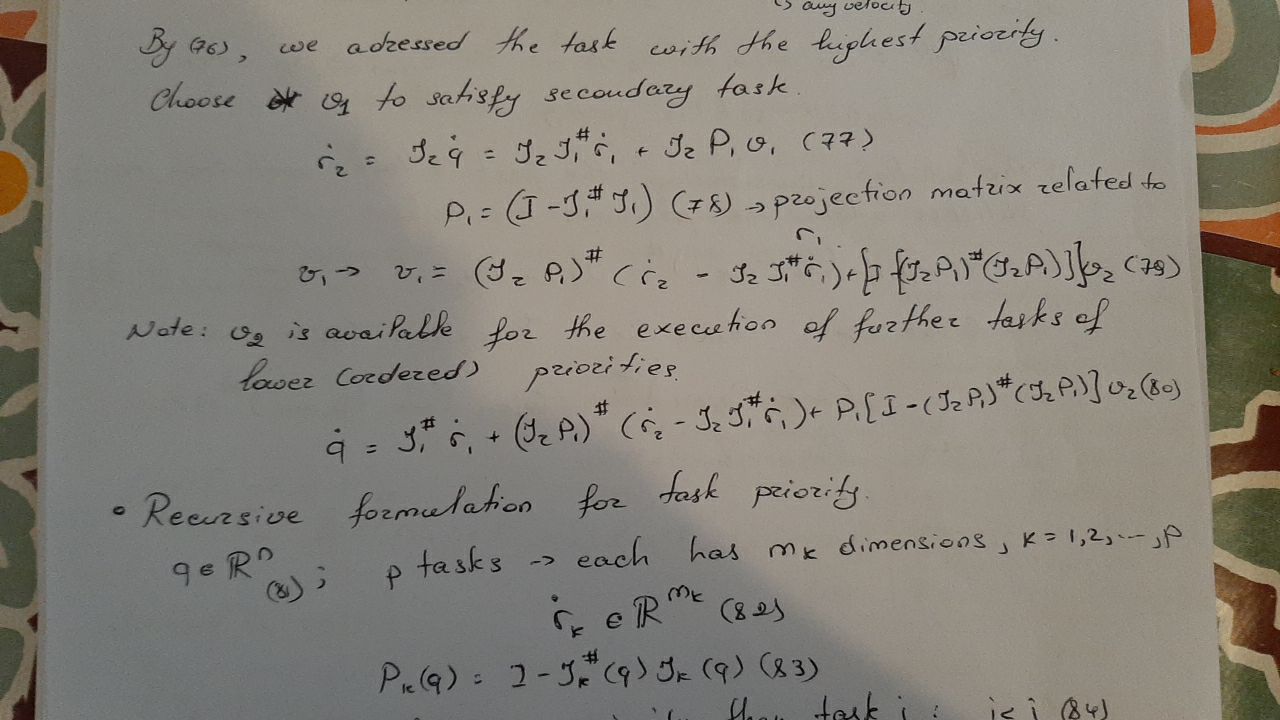 is any velocity.
By (76), we adressed the task with the highest priority.
Choose v₁ to satisfy secondary task.
ṙ₂ = J₂ q̇ = J₂ J₁^# ṙ₁ + J₂ P₁ v₁ (77)
P₁ = (I - J₁^# J₁) (78) → projection matrix related to
r₁.
v₁ → v₁ = (J₂ P₁)^# (ṙ₂ - J₂ J₁^# ṙ₁) + [I - (J₂P₁)^# (J₂P₁)] v₂ (79)
Note: v₂ is available for the execution of further tasks of
lower (ordered) priorities.
q̇ = J₁^# ṙ₁ + (J₂ P₁)^# (ṙ₂ - J₂ J₁^# ṙ₁) + P₁ [I - (J₂P₁)^# (J₂P₁)] v₂ (80)
• Recursive formulation for task priority.
q ∈ ℝⁿ (81) ; p tasks → each has m_k dimensions, k = 1,2,...,p
ṙ_k ∈ ℝ^{m_k} (82)
P_k(q) = I - J_k^# (q) J_k (q) (83)
than task j : i < j (84)